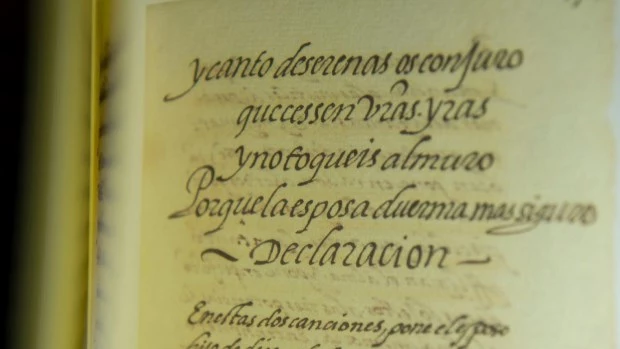 y canto de serenas os conjuro
que cessen vr̃as yras
y no toqueis al muro
Porque la esposa duerma mas siguro
~ Declaracion ~
En estas dos canciones, pone el esposo
hijo de dios